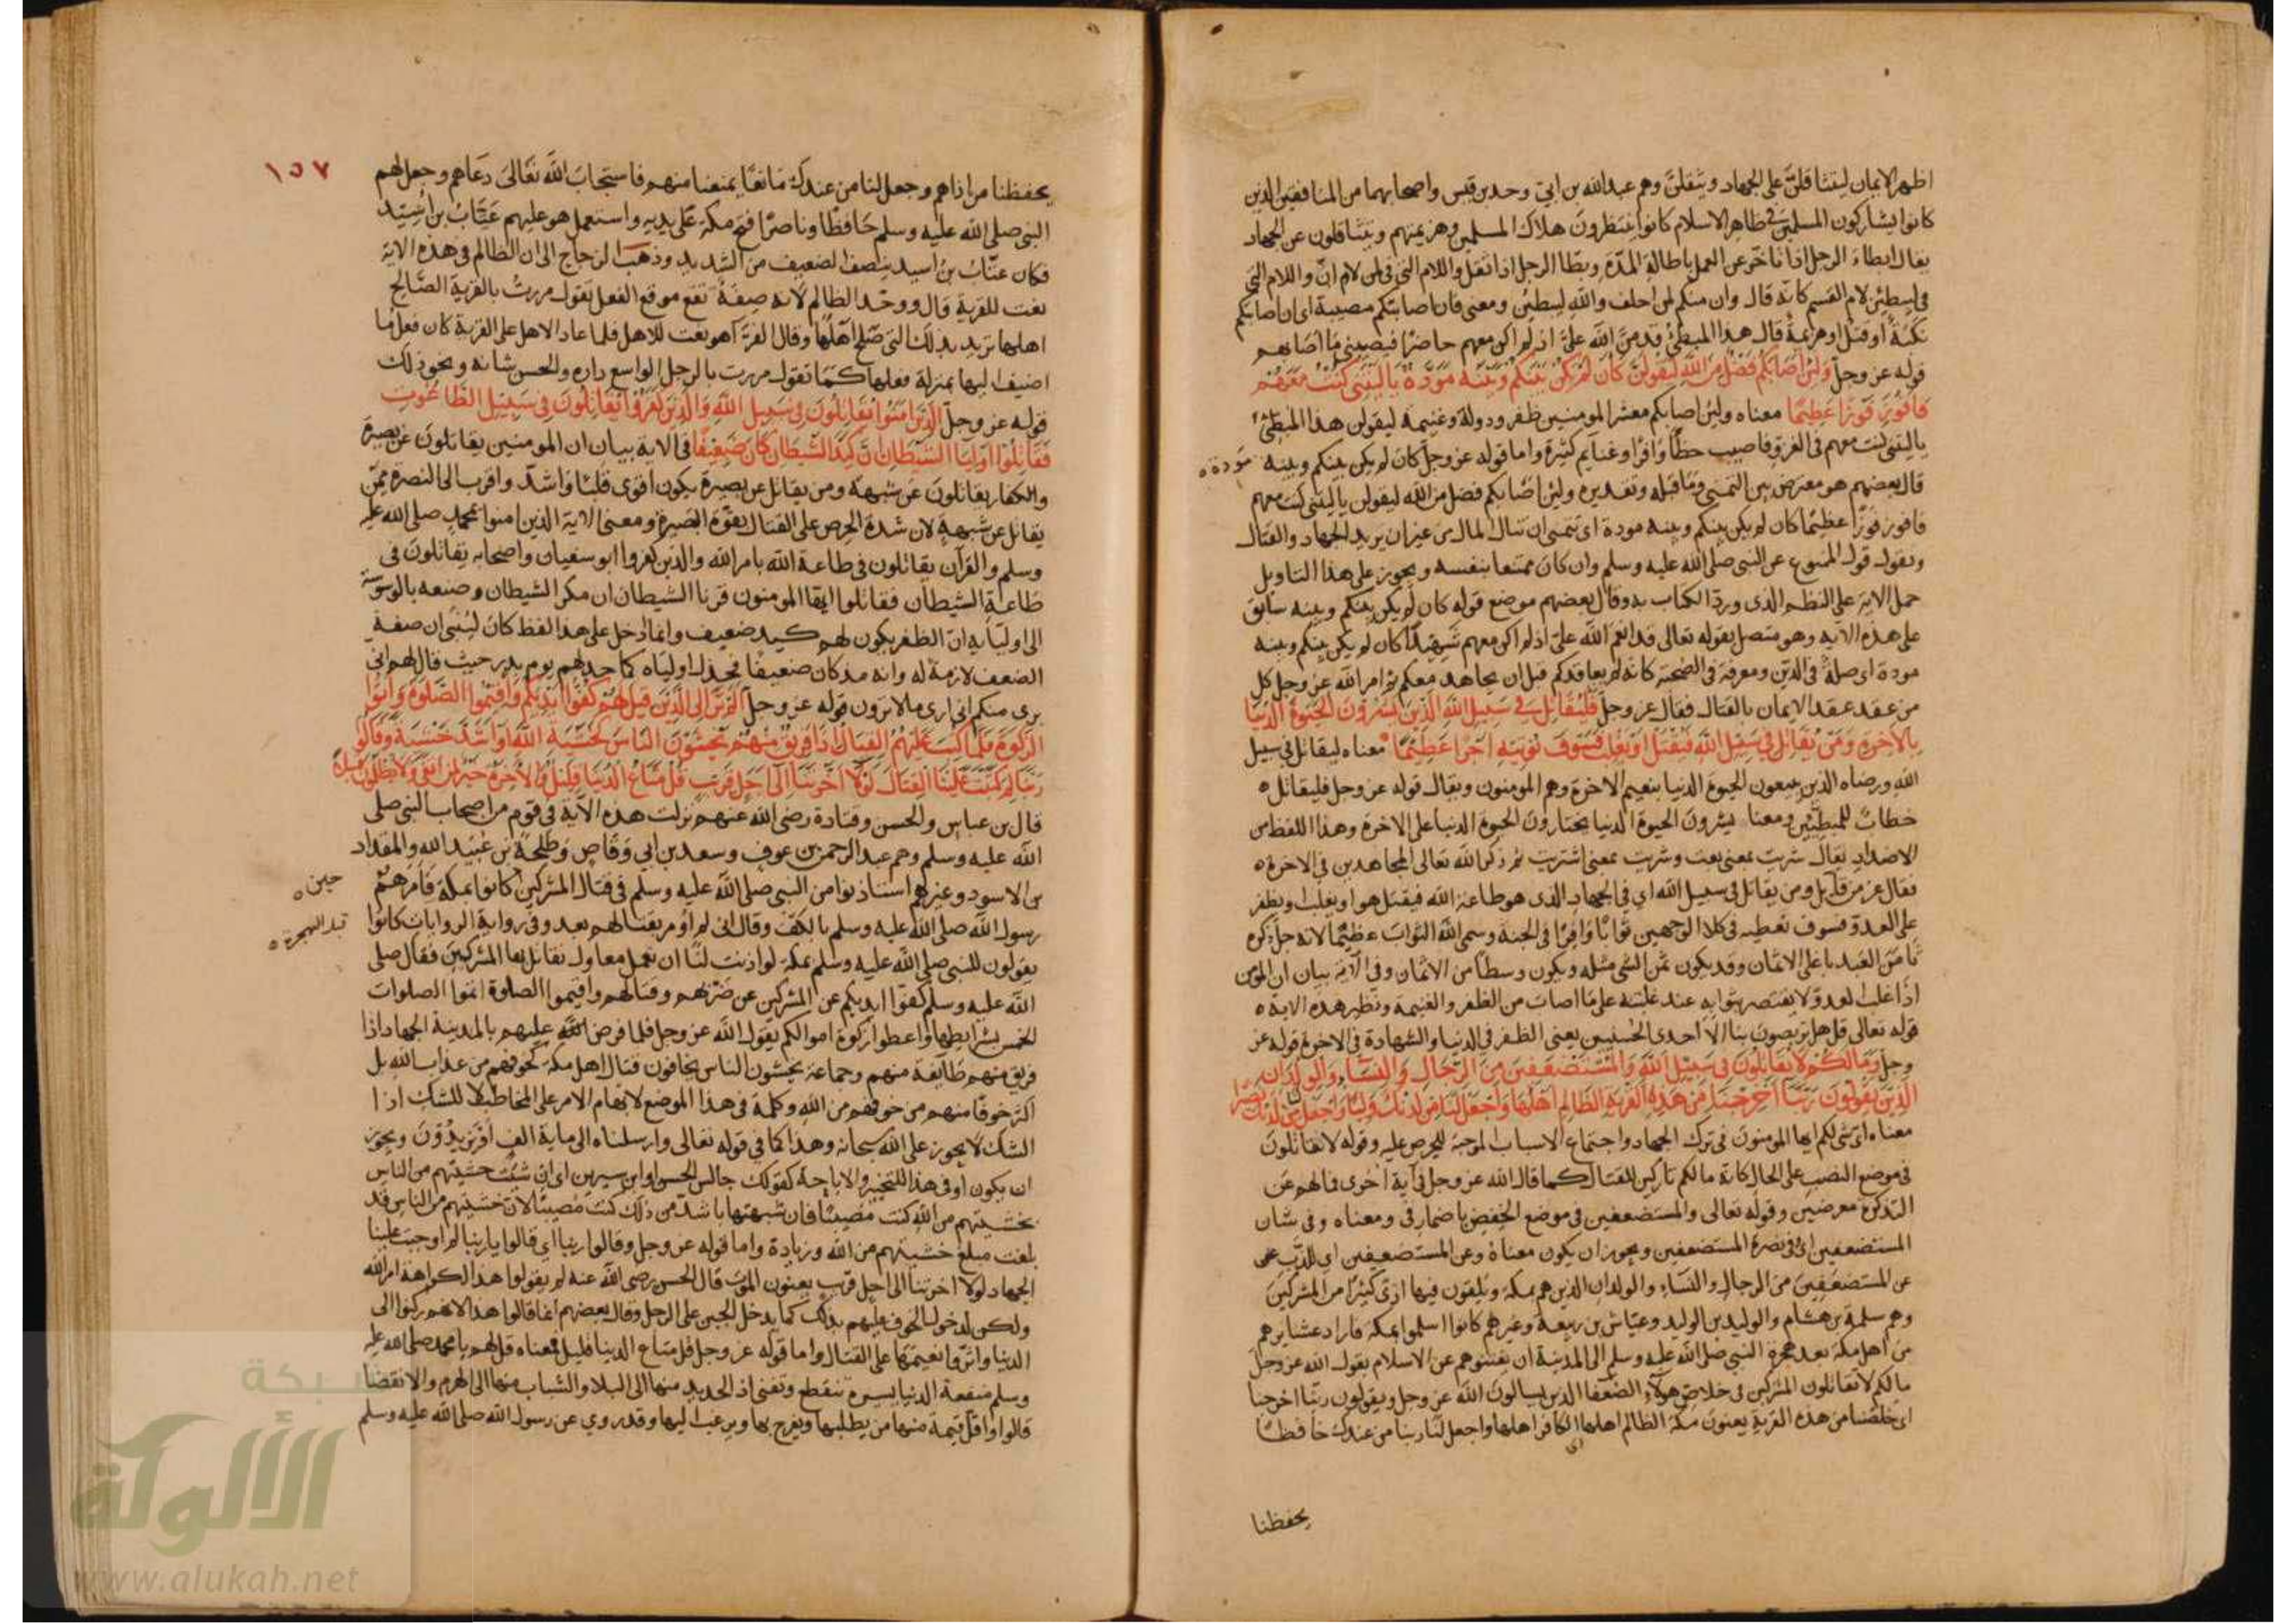 اظهر الايمان ليتثاقلنّ على الجهاد ويثقلنّ وهم عبد الله بن ابيّ وجد بن قيس واصحابهما من المنافقين الذين
كانوا يشاركون المسلمين في ظاهر الاسلام كانوا ينتظرون هلاك المسلمين وهزيمتهم ويتثاقلون عن الجهاد
يقال ابطاء الرجل اذا تأخر عن العمل باطالة المدّة وبطّا الرجل اذا ثقل واللام التي في لمن لام انّ واللام التي
في ليبطئن لام القسم كانه قال وان منكم لمن احلف والله ليبطئن ومعنى فان اصابتكم مصيبة اى ان اصابتكم
نكبة او قتل او هزيمة قال هذا المبطئ قد منّ الله عليّ اذ لم اكن معهم حاضرا فيصيبني ما اصابهم
قوله عز وجل ولئن اصابكم فضل من الله ليقولن كان لم تكن بينكم وبينه مودة يا ليتني كنت معهم
فافوز فوزا عظيما معناه ولئن اصابكم معشر المومنين ظفر ودولة وغنيمة ليقولن هذا المبطئ
يا ليتني كنت معهم في الغزو فاصيب حظا وافرا وغنايم كثيرة واما قوله عز وجل كان لم يكن بينكم وبينه مودة
قال بعضهم هو معترض بين التمني وما قبله وتقديره ولئن اصابكم فضل من الله ليقولن يا ليتني كنت معهم
فافوز فوزا عظيما كان لم يكن بينكم وبينه مودة اى يتمنى ان ينال المال من غير ان يريد الجهاد والقتال
ويقول قول الممنوع عن النبي صلى الله عليه وسلم وان كان ممتنعا بنفسه ويجوز على هذا التاويل
حمل الاية على النظم الذى ورد الكتاب به وقال بعضهم موضع قوله كان لم يكن بينكم وبينه سابق
على هذه الاية وهو متصل بقوله تعالى قد انعم الله عليّ اذ لم اكن معهم شهيدا كان لم يكن بينكم وبينه
مودة اى صلة في الدين ومعرفة في الصحبة كانه لم يعاقدكم قبل ان يجاهد معكم ثم امر الله عز وجل كل
من عقد عقد الايمان بالقتال فقال عز وجل فليقاتل في سبيل الله الذين يشرون الحيوة الدنيا
بالاخرة ومن يقاتل في سبيل الله فيقتل او يغلب فسوف نؤتيه اجرا عظيما معناه ليقاتل في سبيل
الله ورضاه الذين يبيعون الحيوة الدنيا بنعيم الاخرة وهم المومنون ويقال قوله عز وجل فليقاتل
خطاب للمبطئين ومعنا يشرون الحيوة الدنيا يختارون الحيوة الدنيا على الاخرة وهذا اللفظ من
الاضداد يقال شريت بمعنى بعت وشريت بمعنى اشتريت ثم ذكر الله تعالى المجاهدين في الاخرة
فقال عز من قايل ومن يقاتل في سبيل الله اي في الجهاد الذى هو طاعة الله فيقتل هو او يغلب ويظفر
على العدو فسوف نعطيه في كلا الوجهين ثوابا وافرا في الجنة وسمى الله الثواب عظيما لانه جل ذكره
ثامن العبد باعلى الاثمان وقد يكون ثمن الشي مثله ويكون وسطا من الاثمان وفي الآية بيان ان المؤمن
اذا غلب العدو لا يقتصر بثوابه عند غلبته على ما اصاب من الظفر والغنيمة ونظير هذه الاية
قوله تعالى قل هل تربصون بنا الا احدى الحسنيين يعني الظفر في الدنيا والشهادة في الاخرة قوله عز
وجل وما لكم لا تقاتلون في سبيل الله والمستضعفين من الرجال والنساء والولدان
الذين يقولون ربنا اخرجنا من هذه القرية الظالم اهلها واجعل لنا من لدنك وليا واجعل لنا من لدنك نصيرا
معناه اى شي لكم ايها المومنون في ترك الجهاد واجتماع الاسباب الموجبة للحرص عليه وقوله لا تقاتلون
في موضع النصب على الحال كانه ما لكم تاركين للقتال كما قال الله عز وجل في آية اخرى فما لهم عن
التذكرة معرضين وقوله تعالى والمستضعفين في موضع الخفض باضمار في ومعناه وفي شان
المستضعفين اى وفي نصرة المستضعفين ويجوز ان يكون معناه وعن المستضعفين اي للذب عن
عن المستضعفين من الرجال والنساء والولدان الذين هم بمكة ويلقون فيها اذى كثيرا من المشركين
وهم سلمة بن هشام والوليد بن الوليد وعيّاش بن ربيعة وغيرهم كانوا اسلموا بمكة فاراد عشايرهم
من اهل مكة بعد هجرة النبي صلى الله عليه وسلم الى المدينة ان يفتنوهم عن الاسلام يقول الله عز وجل
ما لكم لا تقاتلون المشركين في خلاص هولاء الضعفا الذين يسالون الله عز وجل ويقولون ربنا اخرجنا
اى خلصنا من هذه القرية يعنون مكة الظالم اهلها اى الكافر اهلها واجعل لنا ربنا من عندك حافظا
يحفظنا
١٥٧
يحفظنا من اذاهم وجعل لنا من عندك مانعا يمنعنا منهم فاستجاب الله تعالى دعاهم وجعل لهم
النبي صلى الله عليه وسلم حافظا وناصرا فتح مكة على يديه واستعمل هو عليهم عتّاب بن اسيد
فكان عتّاب بن اسيد ينصف الضعيف من الشديد وذهب الزجاج الى ان الظالم في هذه الاية
نعت للقرية قال ووحّد الظالم لانه صفة تقع موقع الفعل يقول مررت بالقرية الصالح
اهلها تريد بذلك التي صلح اهلها وقال الفراء هو نعت للاهل فلما عاد الاهل على القرية كان فعل ما
اضيف اليها بمنزلة فعلها كما تقول مررت بالرجل الواسع داره والحسن شانه ونحو ذلك
قوله عز وجل الذين امنوا يقاتلون في سبيل الله والذين كفروا يقاتلون في سبيل الطاغوت
فقاتلوا اوليا الشيطان ان كيد الشيطان كان ضعيفا في الاية بيان ان المومنين يقاتلون عن بصيرة
والكفار يقاتلون عن شبهة ومن يقاتل عن بصيرة يكون اقوى قلبا واشد واقرب الى النصرة ممن
يقاتل عن شبهة لان شدة الحرص على القتال بقوة البصيرة ومعنى الاية الذين امنوا بمحمد صلى الله عليه
وسلم والقرآن يقاتلون في طاعة الله بامر الله والذين كفروا ابو سفيان واصحابه يقاتلون في
طاعة الشيطان فقاتلوا ايها المومنون قرنا الشيطان ان مكر الشيطان وصنعه بالوسوسة
الى اوليايه انّ الظفر يكون لهم كيد ضعيف وانما ادخل على هذا لفظ كان ليبين ان صفة
الضعف لازمة له وانه مذ كان ضعيفا فخذل اولياه كما خذلهم يوم بدر حيث قال لهم اني
برى منكم اني ارى ما لا ترون قوله عز وجل الم تر الى الذين قيل لهم كفوا ايديكم واقيموا الصلوة واتوا
الزكوة فلما كتب عليهم القتال اذا فريق منهم يخشون الناس كخشية الله او اشد خشية وقالوا
ربنا لم كتبت علينا القتال لولا اخرتنا الى اجل قريب قل متاع الدنيا قليل والاخرة خير لمن اتقى ولا تظلمون فتيلا
قال بن عباس والحسن وقتادة رضى الله عنهم نزلت هذه الاية في قوم من اصحاب النبي صلى
الله عليه وسلم وهم عبد الرحمن بن عوف وسعد بن ابي وقاص وطلحة بن عبيد الله والمقداد
بن الاسود وغيرهم استاذنوا من النبي صلى الله عليه وسلم في قتال المشركين كانوا بمكة فامرهم
حين
رسول الله صلى الله عليه وسلم بالكفّ وقال اني لم اومر بقتالهم بعد وفي رواية الروايات كانوا
قبل الهجرة
يقولون للنبي صلى الله عليه وسلم بمكة لو اذنت لنا ان نعمل معاول نقاتل بها المشركين فقال صلى
الله عليه وسلم كفوا ايديكم عن المشركين عن ضربهم وقتالهم واقيموا الصلوة اتموا الصلوات
الخمس بشرايطها واعطوا زكوة اموالكم يقول الله عز وجل فلما فرض الله عليهم بالمدينة الجهاد اذا
فريق منهم طائفة منهم وجماعة يخشون الناس يخافون قتال اهل مكة كخوفهم من عذاب الله بل
اكثر خوفا منهم من خوفهم من الله وكلمة في هذا الموضع لابهام الامر على المخاطب لا للشك اذا
الشك لا يجوز على الله سبحانه وهذا كما في قوله تعالى وارسلناه الى ماية الف او يزيدون ويجوز
ان يكون او في هذا للتخيير والاباحة كقولك جالس الحسن او ابن سيرين اي ان شبّهت خشيتهم من الناس
بخشيتهم من الله كنت مصيبا فان شبهتها باشد من ذلك كنت مصيبا لان خشيتهم من الناس قد
بلغت مبلغ خشيتهم من الله وزيادة واما قوله عز وجل وقالوا ربنا اي قالوا يا ربنا لم اوجبت علينا
الجهاد لولا اخرتنا الى اجل قريب يعنون الموت قال الحسن رضى الله عنه لم يقولوا هذا كراهة امر الله
ولكن لدخول الخوف عليهم بذلك كما يدخل الجبن على الرجل وقال بعضهم انما قالوا هذا لانهم ركنوا الى
الدنيا واثروا نعيمها على القتال واما قوله عز وجل قل متاع الدنيا قليل فمعناه قل لهم يا محمد صلى الله عليه
وسلم منفعة الدنيا يسيرة تنقطع وتفنى اذ الجديد منها الى البلا والشباب منها الى الهرم والانقضا
قالوا واقل قيمة منها من يطلبها ويفرح بها ويرغب اليها وقد روي عن رسول الله صلى الله عليه وسلم
شبكة
الألوكة
www.alukah.net